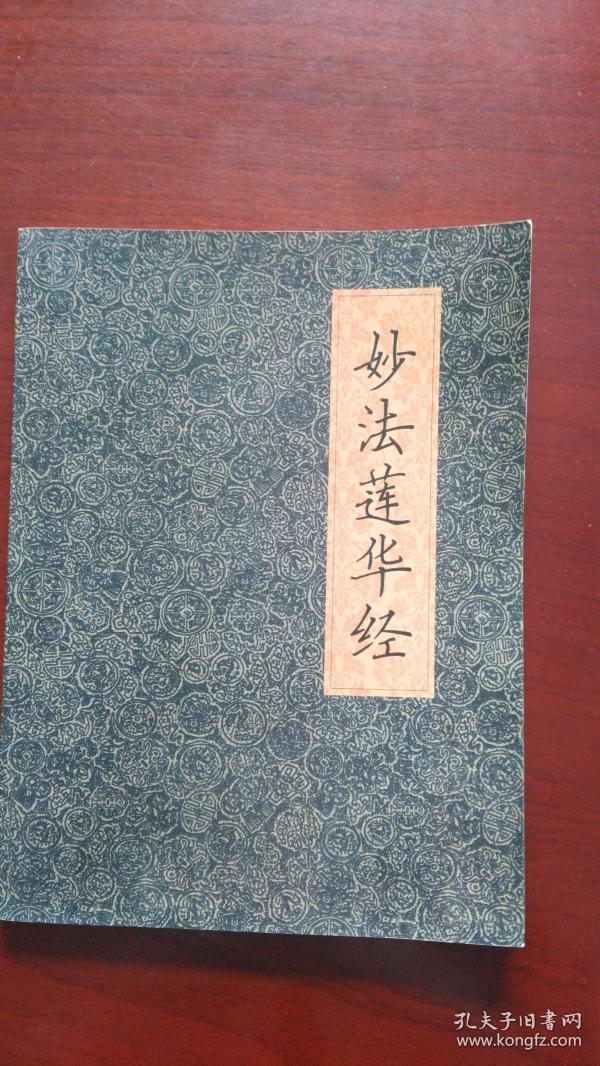 妙法莲华经
孔夫子旧書网
www.kongfz.com